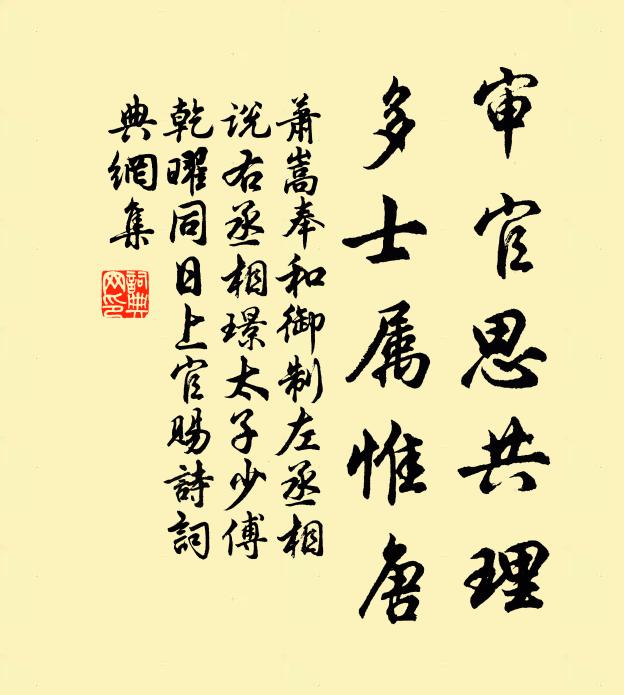 审官思共理
多士属惟唐
萧嵩奉和御制左丞相
说右丞相璟太子少傅
乾曜同日上官赐詩詞
典網集
詞典网印